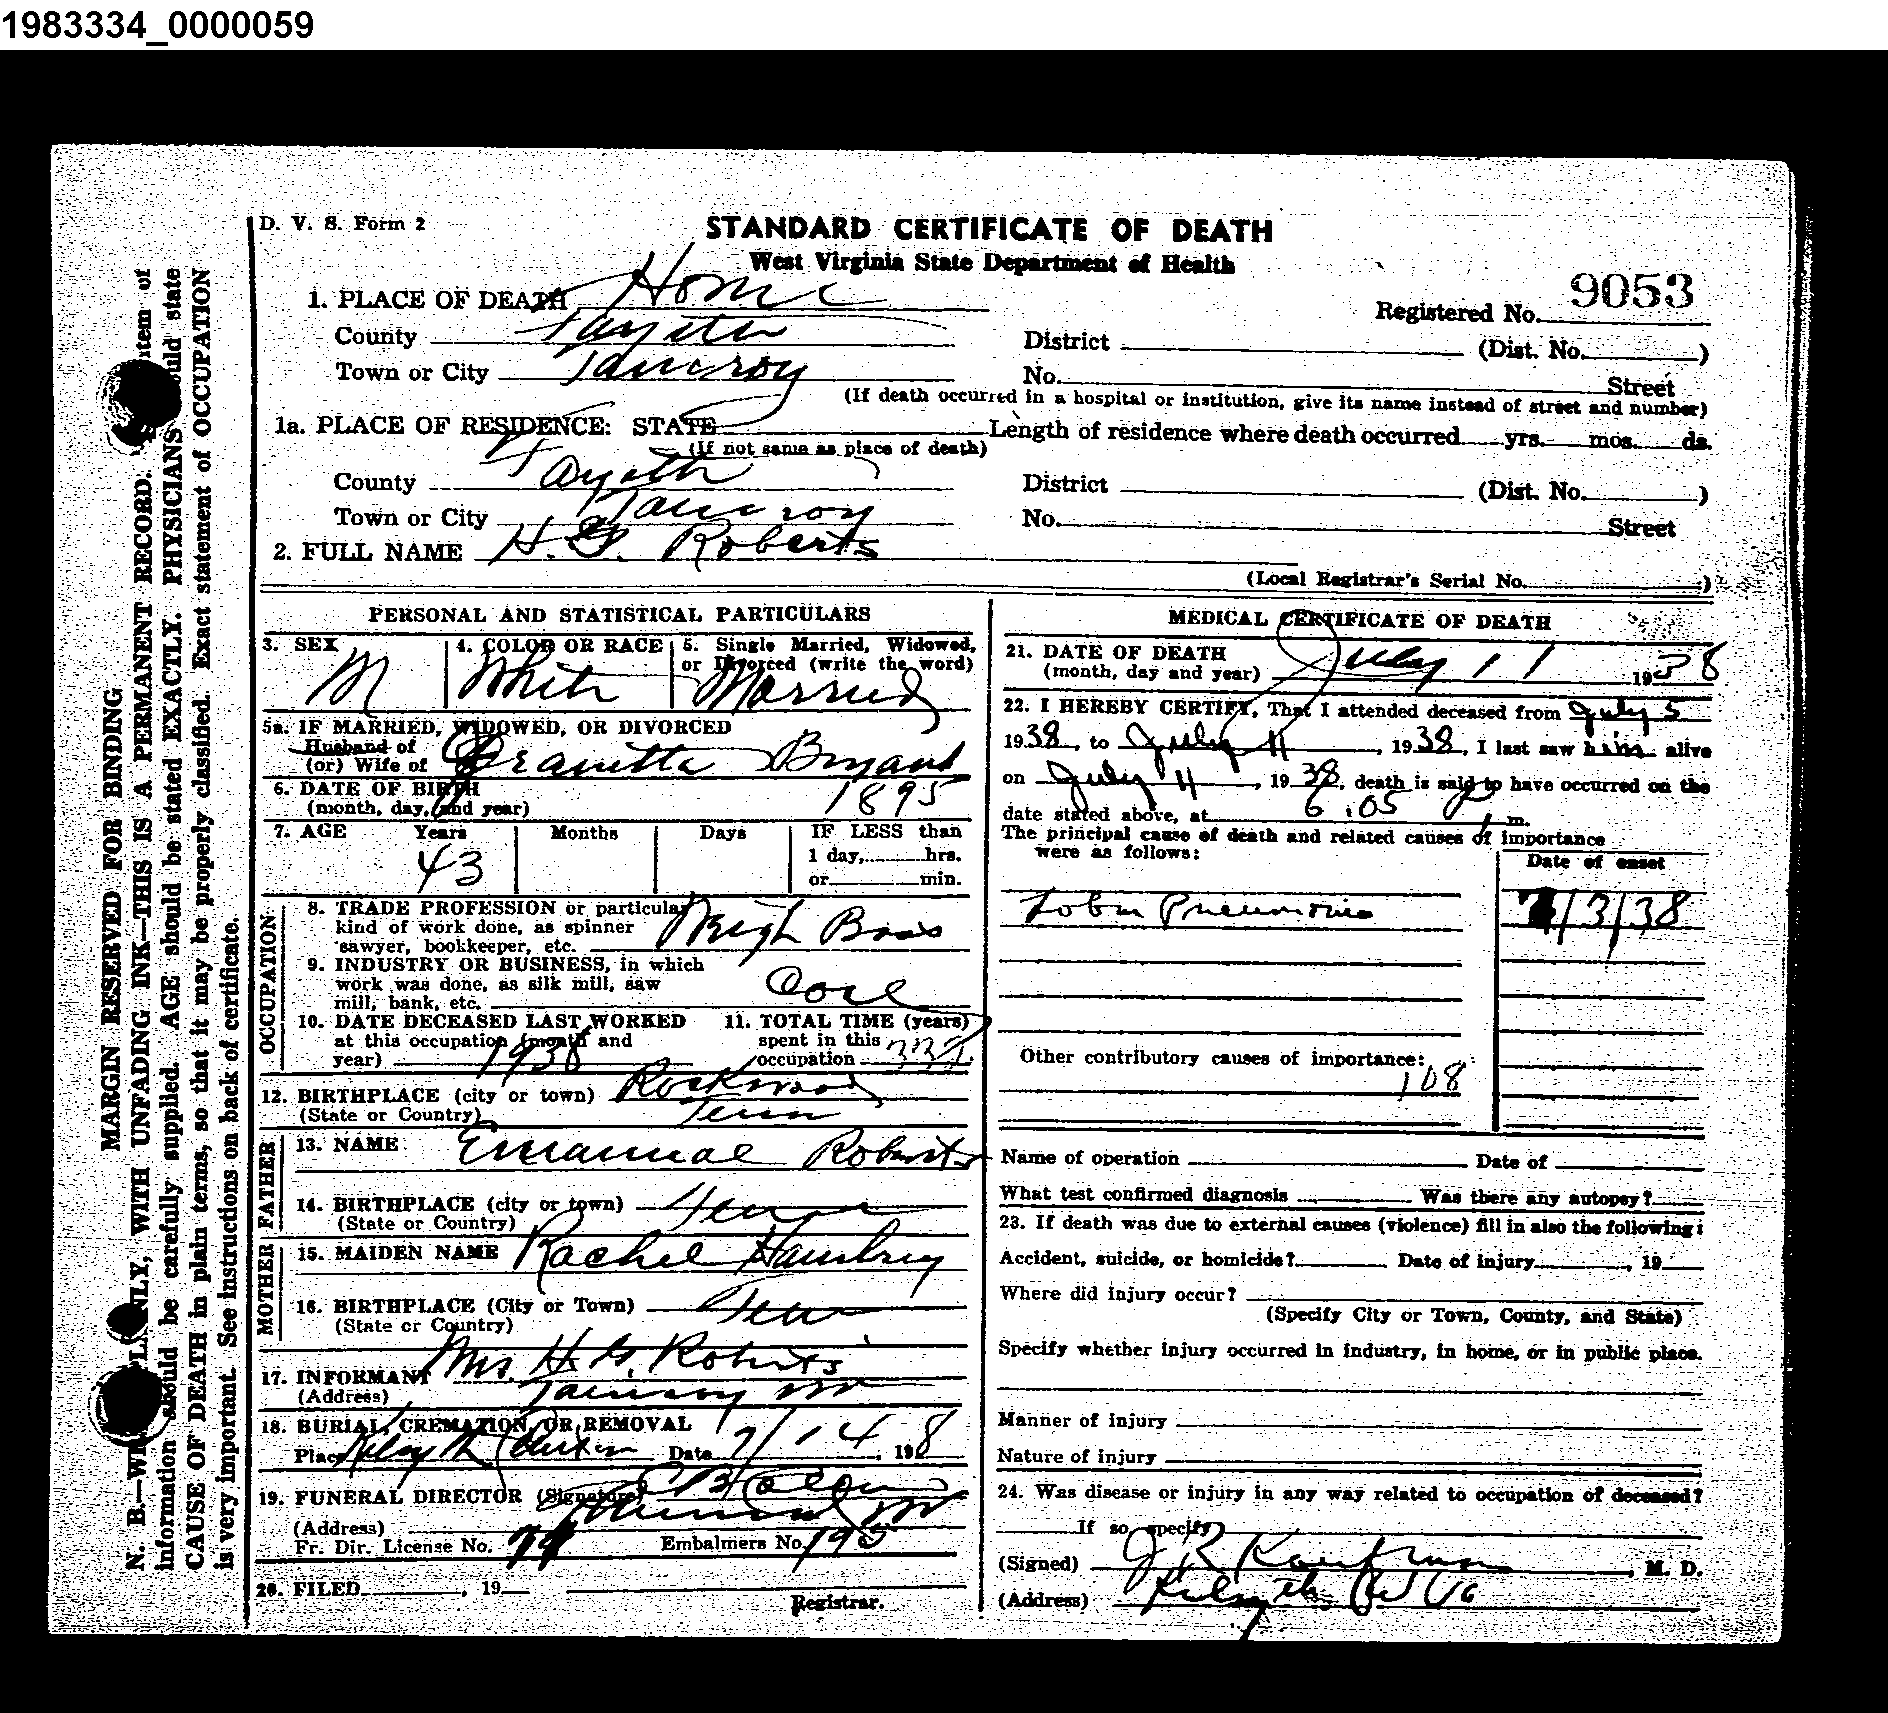 1983334_0000059
D. V. S. Form 2
STANDARD CERTIFICATE OF DEATH
West Virginia State Department of Health
9053
1. PLACE OF DEATH Home
Registered No.
County Fayette
District (Dist. No. )
Town or City Tamcroy
No. Street
(If death occurred in a hospital or institution, give its name instead of street and number)
1a. PLACE OF RESIDENCE: STATE
Length of residence where death occurred yrs. mos. ds.
(If not same as place of death)
County Fayette
District (Dist. No. )
Town or City Tamcroy
No. Street
2. FULL NAME H. G. Roberts
(Local Registrar's Serial No. )
PERSONAL AND STATISTICAL PARTICULARS
3. SEX M
4. COLOR OR RACE White
5. Single Married, Widowed, or Divorced (write the word) Married
5a. IF MARRIED, WIDOWED, OR DIVORCED
Husband of
(or) Wife of Bryant
6. DATE OF BIRTH
(month, day, and year) 1895
7. AGE Years Months Days IF LESS than
43
1 day, hrs.
or min.
OCCUPATION
8. TRADE PROFESSION or particular
kind of work done, as spinner
sawyer, bookkeeper, etc. Weigh Boss
9. INDUSTRY OR BUSINESS, in which
work was done, as silk mill, saw
mill, bank, etc. Coal
10. DATE DECEASED LAST WORKED
at this occupation (month and
year) 1938
11. TOTAL TIME (years)
spent in this
occupation
12. BIRTHPLACE (city or town) Rockwood
(State or Country) Tenn
FATHER
13. NAME Emanuel Roberts
14. BIRTHPLACE (city or town) Tenn
(State or Country)
MOTHER
15. MAIDEN NAME Rachel
16. BIRTHPLACE (City or Town) Tenn
(State or Country)
17. INFORMANT Mrs. H. G. Roberts
(Address) Tamcroy W
18. BURIAL, CREMATION, OR REMOVAL
Place Kilsyth Date 7/14, 1938
19. FUNERAL DIRECTOR (Signature)
(Address)
Fr. Dir. License No. 74 Embalmers No. 195
20. FILED , 19
Registrar.
MEDICAL CERTIFICATE OF DEATH
21. DATE OF DEATH
(month, day and year) July 11 1938
22. I HEREBY CERTIFY, That I attended deceased from July 5
1938, to July 11, 1938, I last saw him alive
on July 11, 1938, death is said to have occurred on the
date stated above, at 6:05 P m.
The principal cause of death and related causes of importance
were as follows:
Date of onset
Lobar Pneumonia 7/3/38
Other contributory causes of importance:
108
Name of operation Date of
What test confirmed diagnosis Was there any autopsy?
23. If death was due to external causes (violence) fill in also the following:
Accident, suicide, or homicide? Date of injury , 19
Where did injury occur?
(Specify City or Town, County, and State)
Specify whether injury occurred in industry, in home, or in public place.
Manner of injury
Nature of injury
24. Was disease or injury in any way related to occupation of deceased?
If so, specify
(Signed) J R Kaufman, M. D.
(Address) Kilsyth W Va
MARGIN RESERVED FOR BINDING
N. B.—WRITE PLAINLY, WITH UNFADING INK—THIS IS A PERMANENT RECORD. item of
information should be carefully supplied. AGE should be stated EXACTLY. PHYSICIANS should state
CAUSE OF DEATH in plain terms, so that it may be properly classified. Exact statement of OCCUPATION
is very important. See instructions on back of certificate.